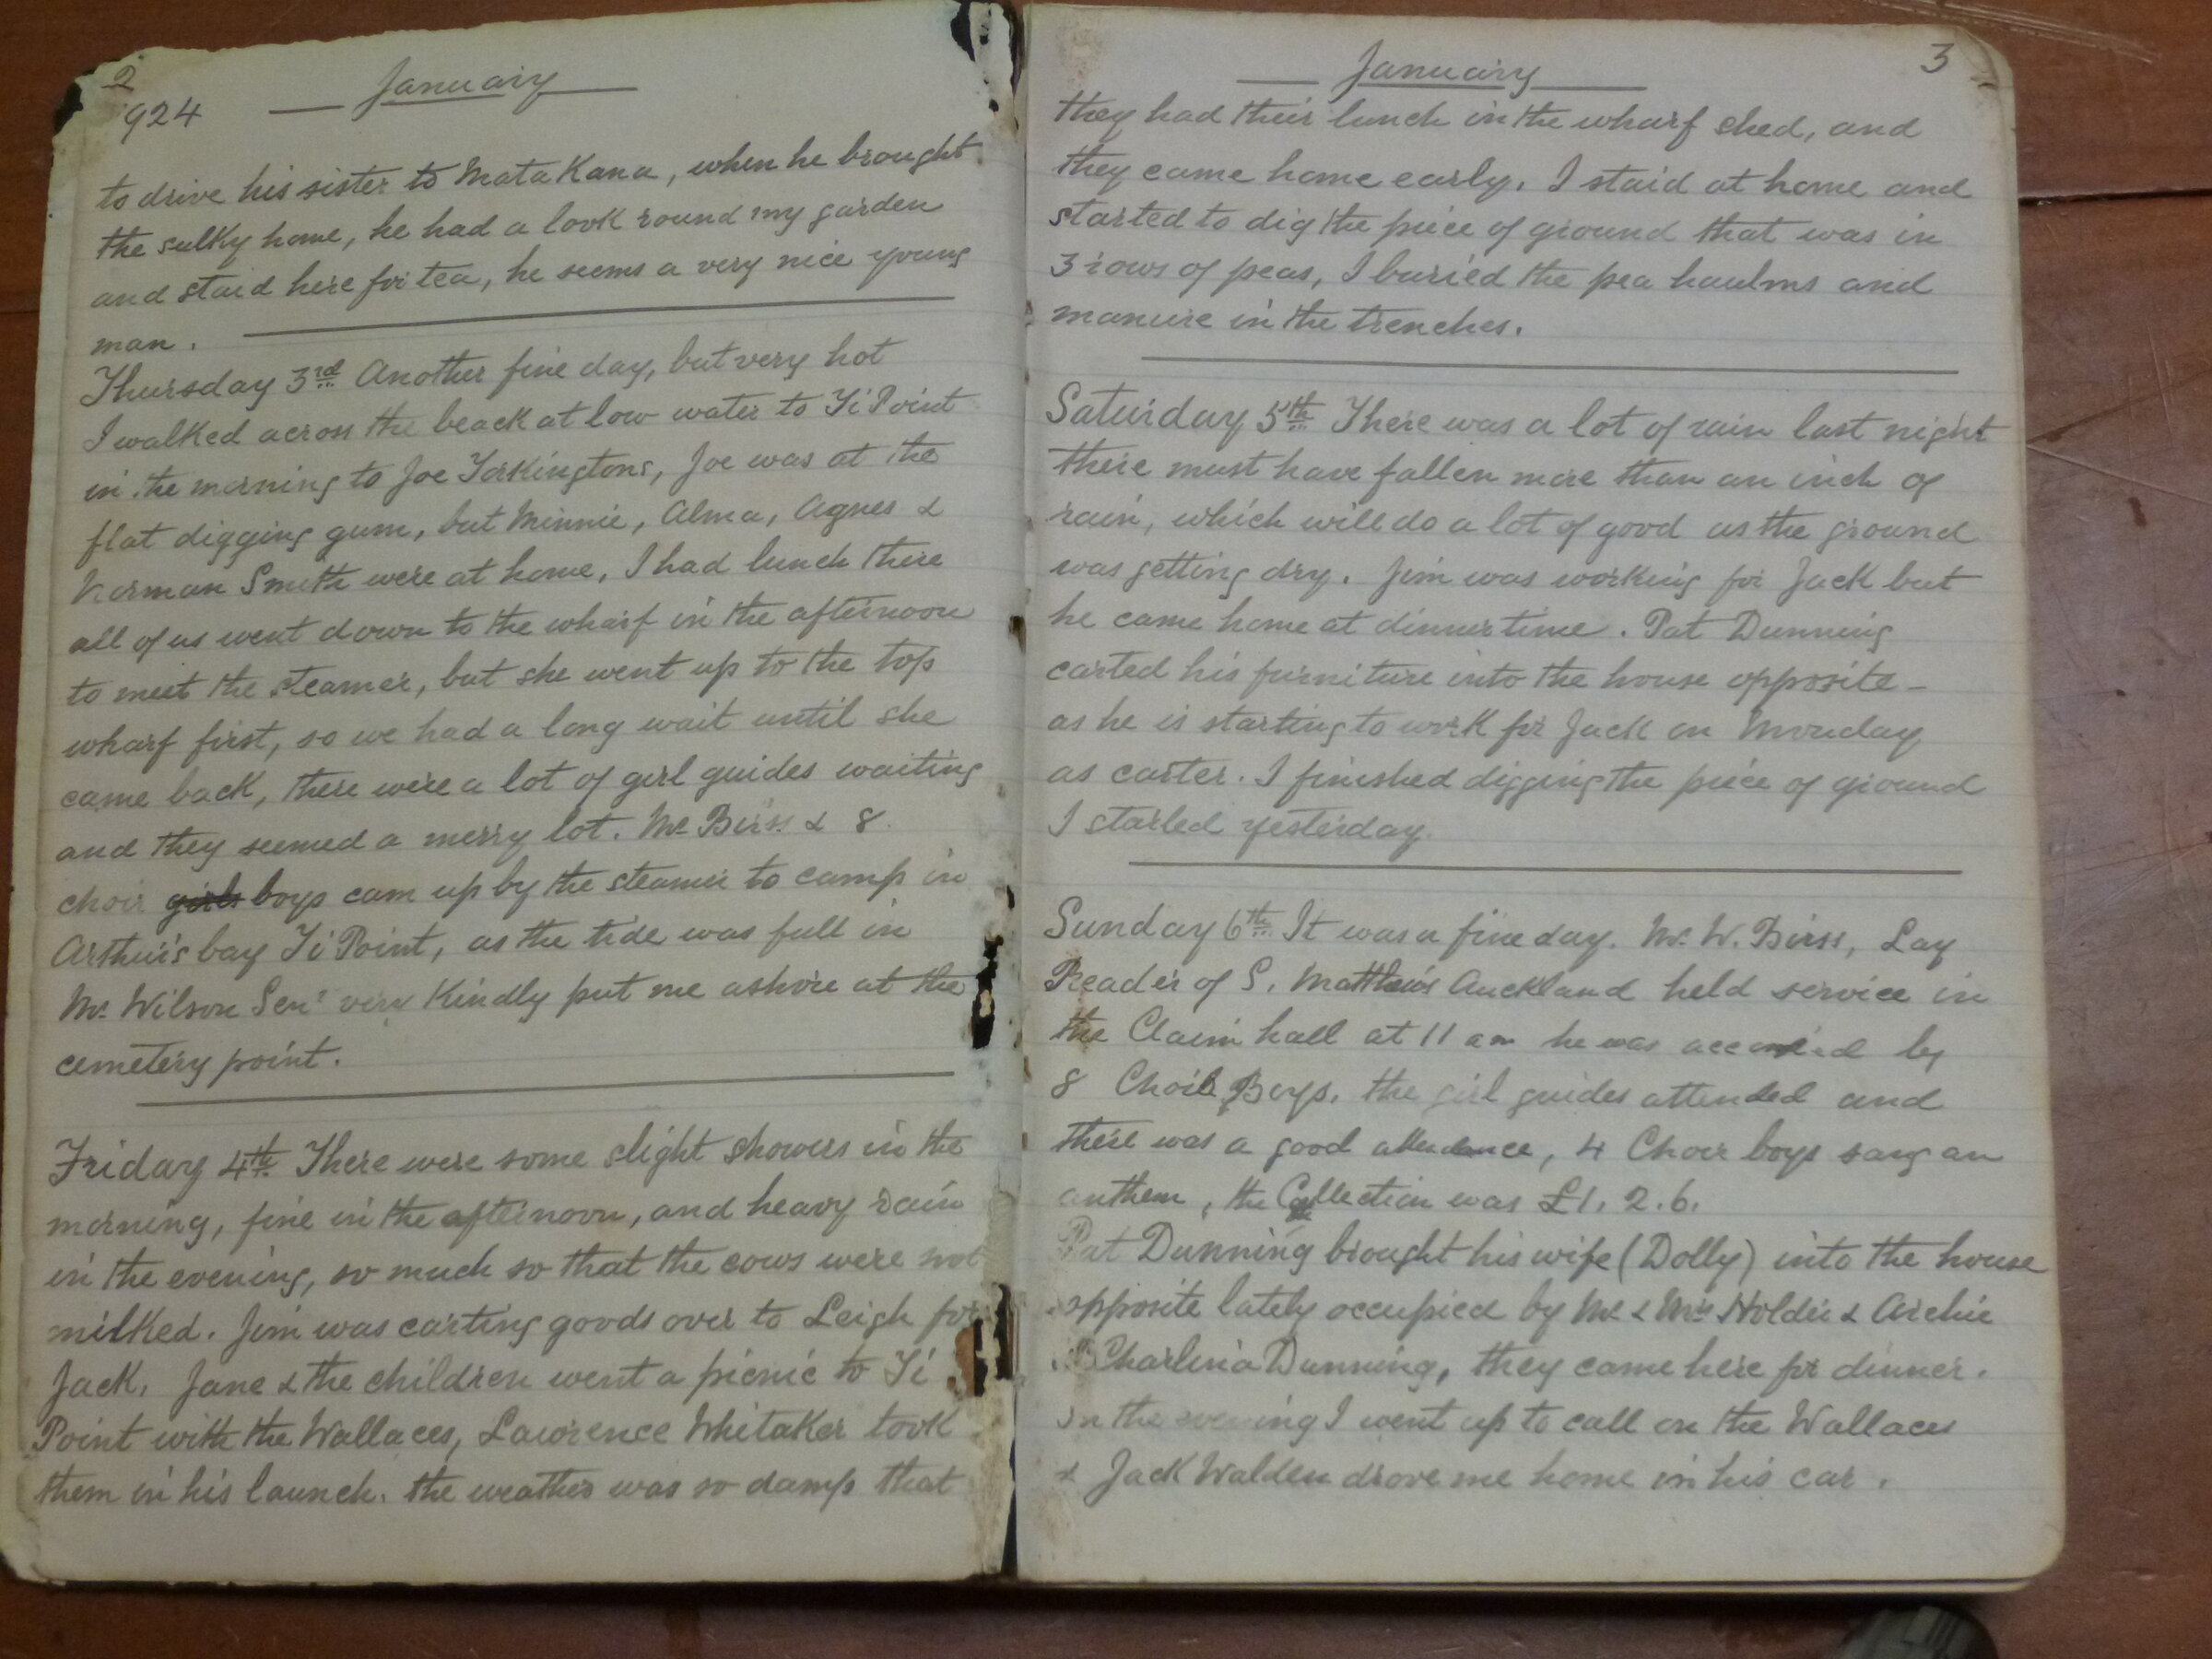 2
January
924
to drive his sister to MataKana, when he brought
the sulky home, he had a look round my garden
and staid here for tea, he seems a very nice young
man.
Thursday 3rd Another fine day, but very hot
I walked across the beack at low water to Ti Point
in the morning to Joe Torkingtons, Joe was at the
flat digging gum, but Minnie, Alma, Agnes &
Norman Smith were at home, I had lunch there
all of us went down to the wharf in the afternoon
to meet the steamer, but she went up to the top
wharf first, so we had a long wait until she
came back, there were a lot of girl guides waiting
and they seemed a merry lot. Mr Birss & 8.
choir girls boys cam up by the steamer to camp in
Arthur's bay Ti Point, as the tide was full in
Mr Wilson Senr very kindly put me ashore at the
cemetery point.
Friday 4th There were some slight showers in the
morning, fine in the afternoon, and heavy rain
in the evening, so much so that the cows were not
milked. Jim was carting goods over to Leigh for
Jack. Jane & the children went a picnic to Ti
Point with the Wallaces, Lawrence Whitaker took
them in his launch. the weather was so damp that
January
3
they had their lunch in the wharf shed, and
they came home early. I staid at home and
started to dig the piece of ground that was in
3 rows of peas, I buried the pea haulms and
manure in the trenches.
Saturday 5th There was a lot of rain last night
there must have fallen more than an inch of
rain, which will do a lot of good as the ground
was getting dry. Jim was working for Jack but
he came home at dinner time. Pat Dunning
carted his furniture into the house opposite -
as he is starting to work for Jack on Monday
as carter. I finished digging the piece of ground
I started yesterday.
Sunday 6th It was a fine day. Mr. W. Birss, Lay
Reader of S. Matthew's Auckland held service in
the Claim hall at 11 am he was by
8 Choir Boys. the girl guides attended and
there was a good attendance, 4 Choir boys sang an
anthem, the Collection was £1. 2. 6.
Pat Dunning brought his wife (Dolly) into the house
opposite lately occupied by Mr & Mrs Holder & Archie
& Charlina Dunning, they came here for dinner.
In the evening I went up to call on the Wallaces
& Jack Walden drove me home in his car.